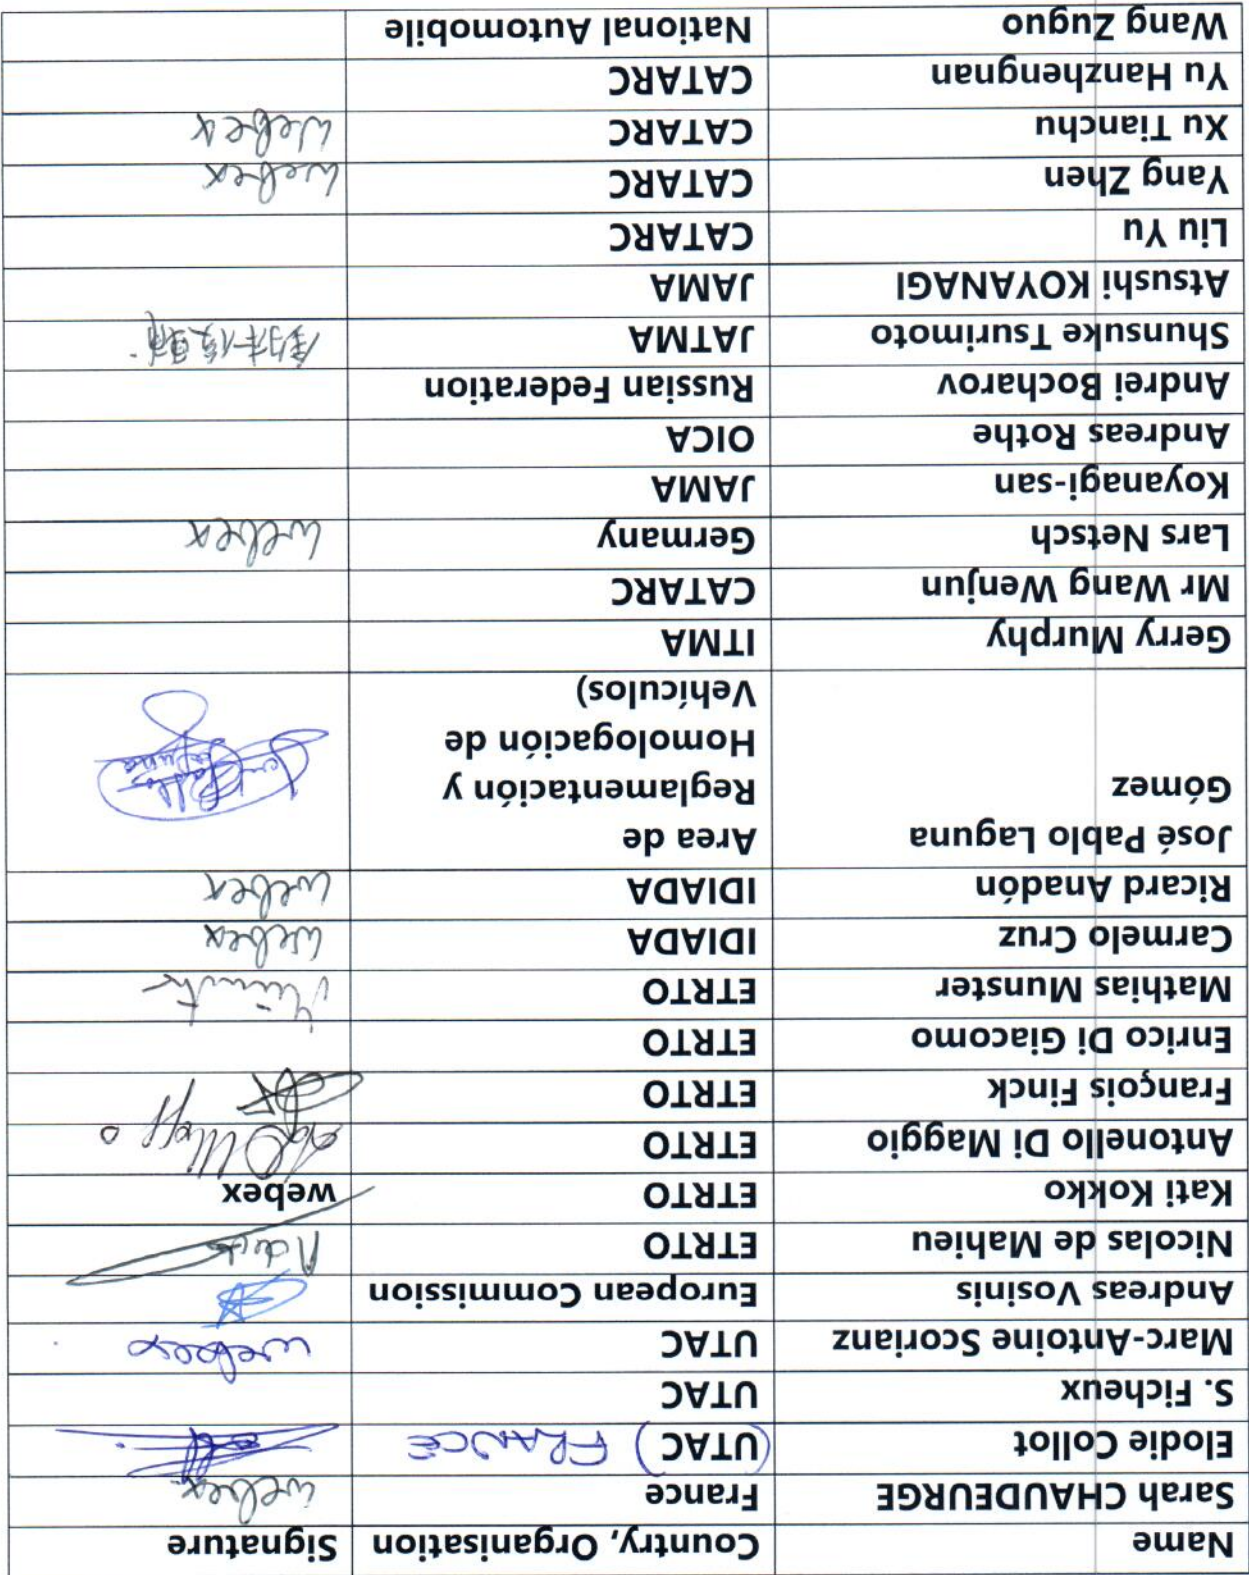 Name Country, Organisation Signature
Sarah CHAUDEURGE France webex
Elodie Collot (UTAC) FRANCE
S. Ficheux UTAC
Marc-Antoine Scorianz UTAC webex
Andreas Vosinis European Commission
Nicolas de Mahieu ETRTO
Kati Kokko ETRTO webex
Antonello Di Maggio ETRTO
François Finck ETRTO
Enrico Di Giacomo ETRTO
Mathias Munster ETRTO
Carmelo Cruz IDIADA webex
Ricard Anadón IDIADA webex
José Pablo Laguna Area de
Gómez Reglamentación y
Homologación de
Vehículos)
Gerry Murphy ITMA
Mr Wang Wenjun CATARC
Lars Netsch Germany webex
Koyanagi-san JAMA
Andreas Rothe OICA
Andrei Bocharov Russian Federation
Shunsuke Tsurimoto JATMA
Atsushi KOYANAGI JAMA
Liu Yu CATARC
Yang Zhen CATARC webex
Xu Tianchu CATARC webex
Yu Hanzhengnan CATARC
Wang Zuguo National Automobile